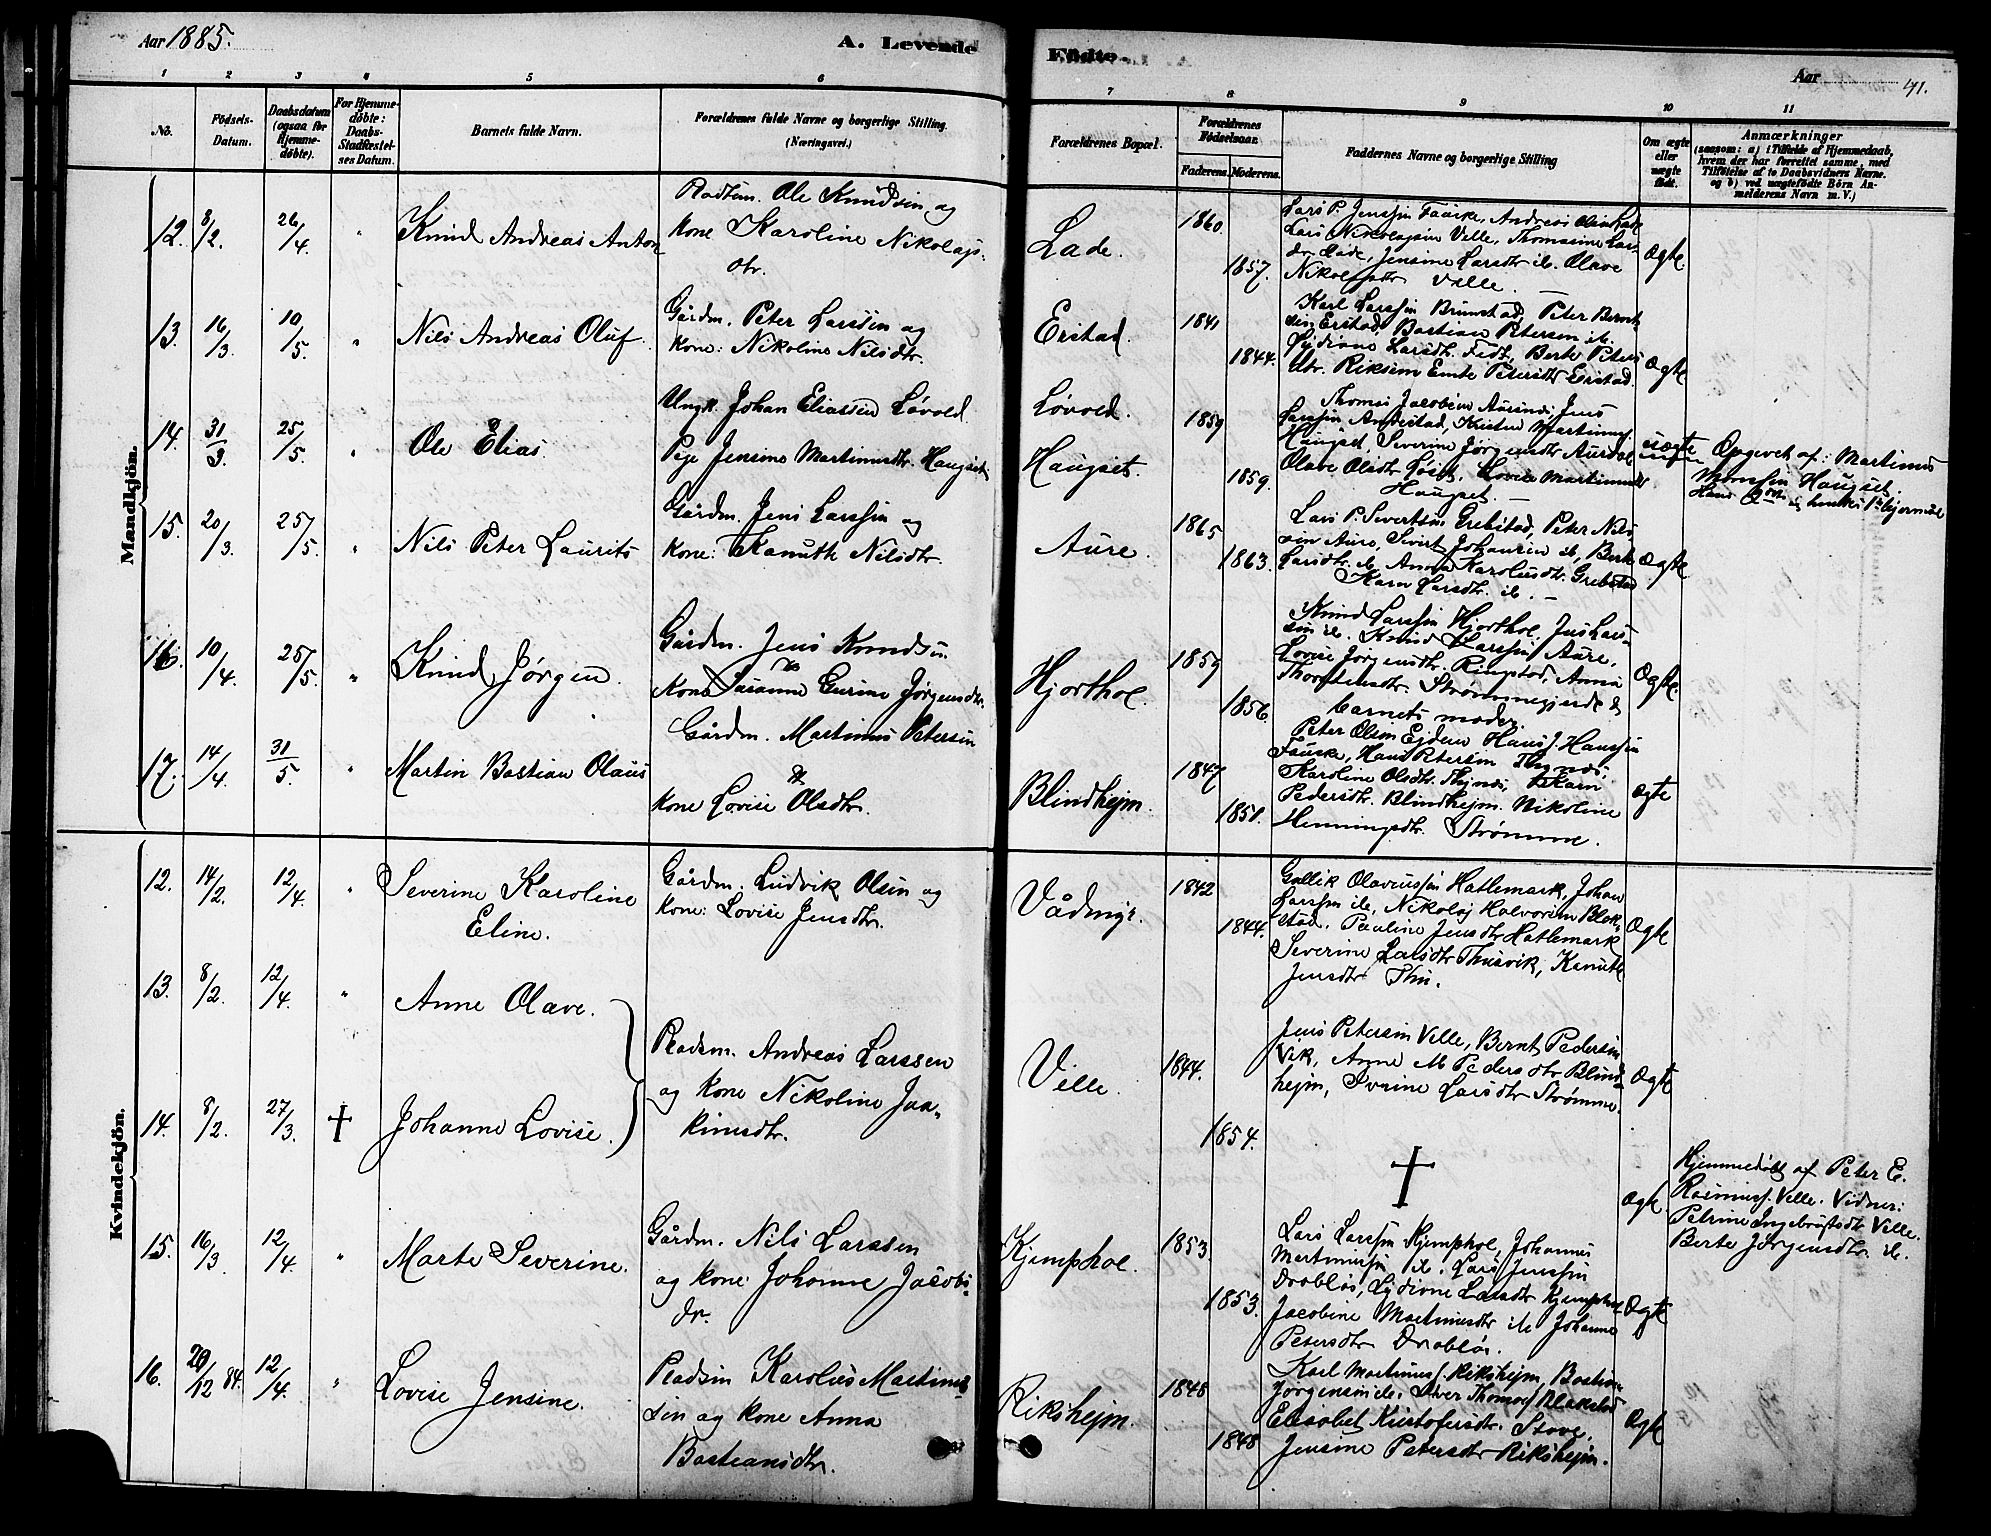 Aar 1885.
A. Levende
Födte.
Aar
41.
1 2 3 4 5 6
7 8 9 10 11
No.
Födsels-
Datum.
Daabsdatum
(ogsaa for
Hjemme-
döbte).
For Hjemme-
döbte:
Daabs-
Stadfæstel-
ses Datum.
Barnets fulde Navn.
Forældrenes fulde Navne og borgerlige Stilling.
(Næringsvei.)
Forældrenes Bopæl.
Forældrenes
Födselsaar.
Faderens. Moderens.
Faddernes Navne og borgerlige Stilling
Om ægte
eller
uægte
födt.
Anmærkninger
(saasom: a) i Tilfælde af Hjemmedaab,
hvem der har forrettet samme, med
Tilföielse af to Daabsvidners Navne.
og b) ved uægtefödte Börn An-
melderens Navn m. V.)
Mandkjön.
12. 8/2 26/4 " Knud Andreas Anton
Pladsm. Ole Knudsen og
kone Karoline Nikolajs-
dtr.
Lade. 1860. 1857.
Lars P. Jenssen Fauske, Andreas Olsen Lade
Lars Nikolajsen Velle, Thomasine Lars-
dtr Lade, Jensine Larsdtr ib. Olave
Nikolajsdtr Velle.
Ægte
13. 16/3 10/5 " Nils Andreas Oluf.
Gårdm. Peter Larssen og
kone: Nikoline Nilsdtr.
Erstad. 1841 1844.
Karl Larssen Brunstad, Peter Bernt
sen Erstad, Bastian Petersen ib.
Lydiane Larsdtr. Fedt, Berte Peters
dtr. Emte Petersdtr Erstad.
Ægte
14. 31/3 25/5 " Ole Elias.
Ungk. Johan Eliassen Løvold
Pige Jensine Martinusdtr. Haugset
Løvold.
Haugset. 1859 1859.
Thomas Jacobsen Aursnes, Jens
Larssen Andestad, Kristen Martinus.
Haugset, Severine Jørgensdtr Aurdal
Olave Olsdtr Løset, Lovise Martinusdtr
Haugset.
uægte
Opgivet af: Martinus
Monssen Haugset.
15. 20/3 25/5. " Nils Peter Laurits
Gårdm. Jens Larssen og
kone: Kanutte Nilsdtr.
Aure. 1865 1863.
Lars P. Sivertsen Grebstad, Peter Nils-
sen Aure, Sivert Johansen ib, Berte
Larsdtr. ib Anna Karolusdtr. Grebstad
Karn Larsdtr. ib.
Ægte
16. 10/4. 25/5. " Knud Jørgen.
Gårdm. Jens Knudsen.
kone Susanne Gurine Jørgensdtr.
Hjorthol. 1859 1856.
Knud Larssen Hjorthol, Jens Lars-
sen ib. Knud Larssen Aure,
Lovise Jørgensdtr. Ringstad, Anna
Thorstensdtr. Strømmegjerde &
barnets moder.
Ægte.
17. 14/4 31/5 " Martin Bastian Olaus
Gårdm. Martinus Petersen
kone Lovise Olsdtr.
Blindhejm. 1847 1851.
Peter Olsen Eidem Hans J. Hanssen
Fauske, Hans Petersen Thynes,
Karoline Olsdtr. Thynes, Karn
Pedersdtr. Blindhejm. Nikoline
Henningsdtr. Strømme.
ægte
Kvindekjön.
12. 14/2. 12/4. " Severine Karoline
Eline.
Gårdm. Ludvik Olsen og
kone: Lovise Jensdtr.
Vådmyr. 1842 1844.
Gullik Olaveussen Hatlemark, Johan
Larssen ib, Nikolaj Halvorsen Blak-
stad. Pauline Jensdtr Hatlemark
Severine Larsdtr Thusvik, Kanutte
Jensdtr Thu.
Ægte
13. 8/2. 12/4. " Anne Olave.
Pladsm. Andreas Larssen
og kone Nikoline Joa-
kimsdtr.
Velle. 1844. 1854.
Jens Petersen Velle, Bernt Pedersen
Vik, Anne M Pedersdtr Blind-
hejm, Iverine Larsdtr Strømme.
Ægte
14. 8/2. 27/3. † Johanne Lovise.
†
ægte
Hjemmedøbt af Peter E.
Rasmuss. Velle. Vidner:
Petrine Ingebrigtsdtr Velle.
Berte Jørgensdtr. ib.
15. 16/3 12/4 " Marte Severine.
Gårdm. Nils Larssen
og kone: Johanne Jacobs-
dr.
Kjemphol. 1853. 1853.
Lars Larssen Kjemphol, Johannes
Martinussen ib. Lars Jenssen
Drabløs, Lydiane Larsdtr Kjemphol
Jacobine Martinusdtr ib Johanne
Petersdtr Drabløs.
Ægte
16. 29/12 84. 12/4. " Lovise Jensine.
Pladsm Karolus Martinus
sen og kone Anna
Bastiansdtr.
Rikshejm. 1848 1848
Karl Martinuss. Rikshejm, Bastian
Jørgensen ib. Iver Thomass Blakstad
Elisabet Kristofersdtr. Stove,
Jensine Petersdtr Rikshejm.
Ægte